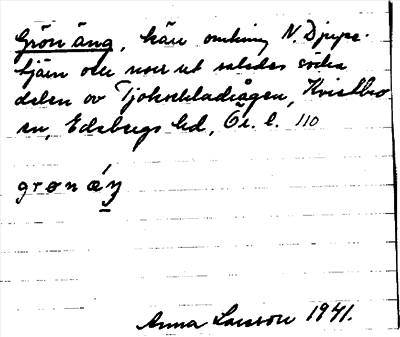 Grön äng, kärr omkring N. Djupe-
tjärn och norr ut således södra
delen av Tjohnbladrågen, Kvistbro
sn, Edsbergs hd, Ör. l. 110
grønǽŋ
Anna Larsson 1941.